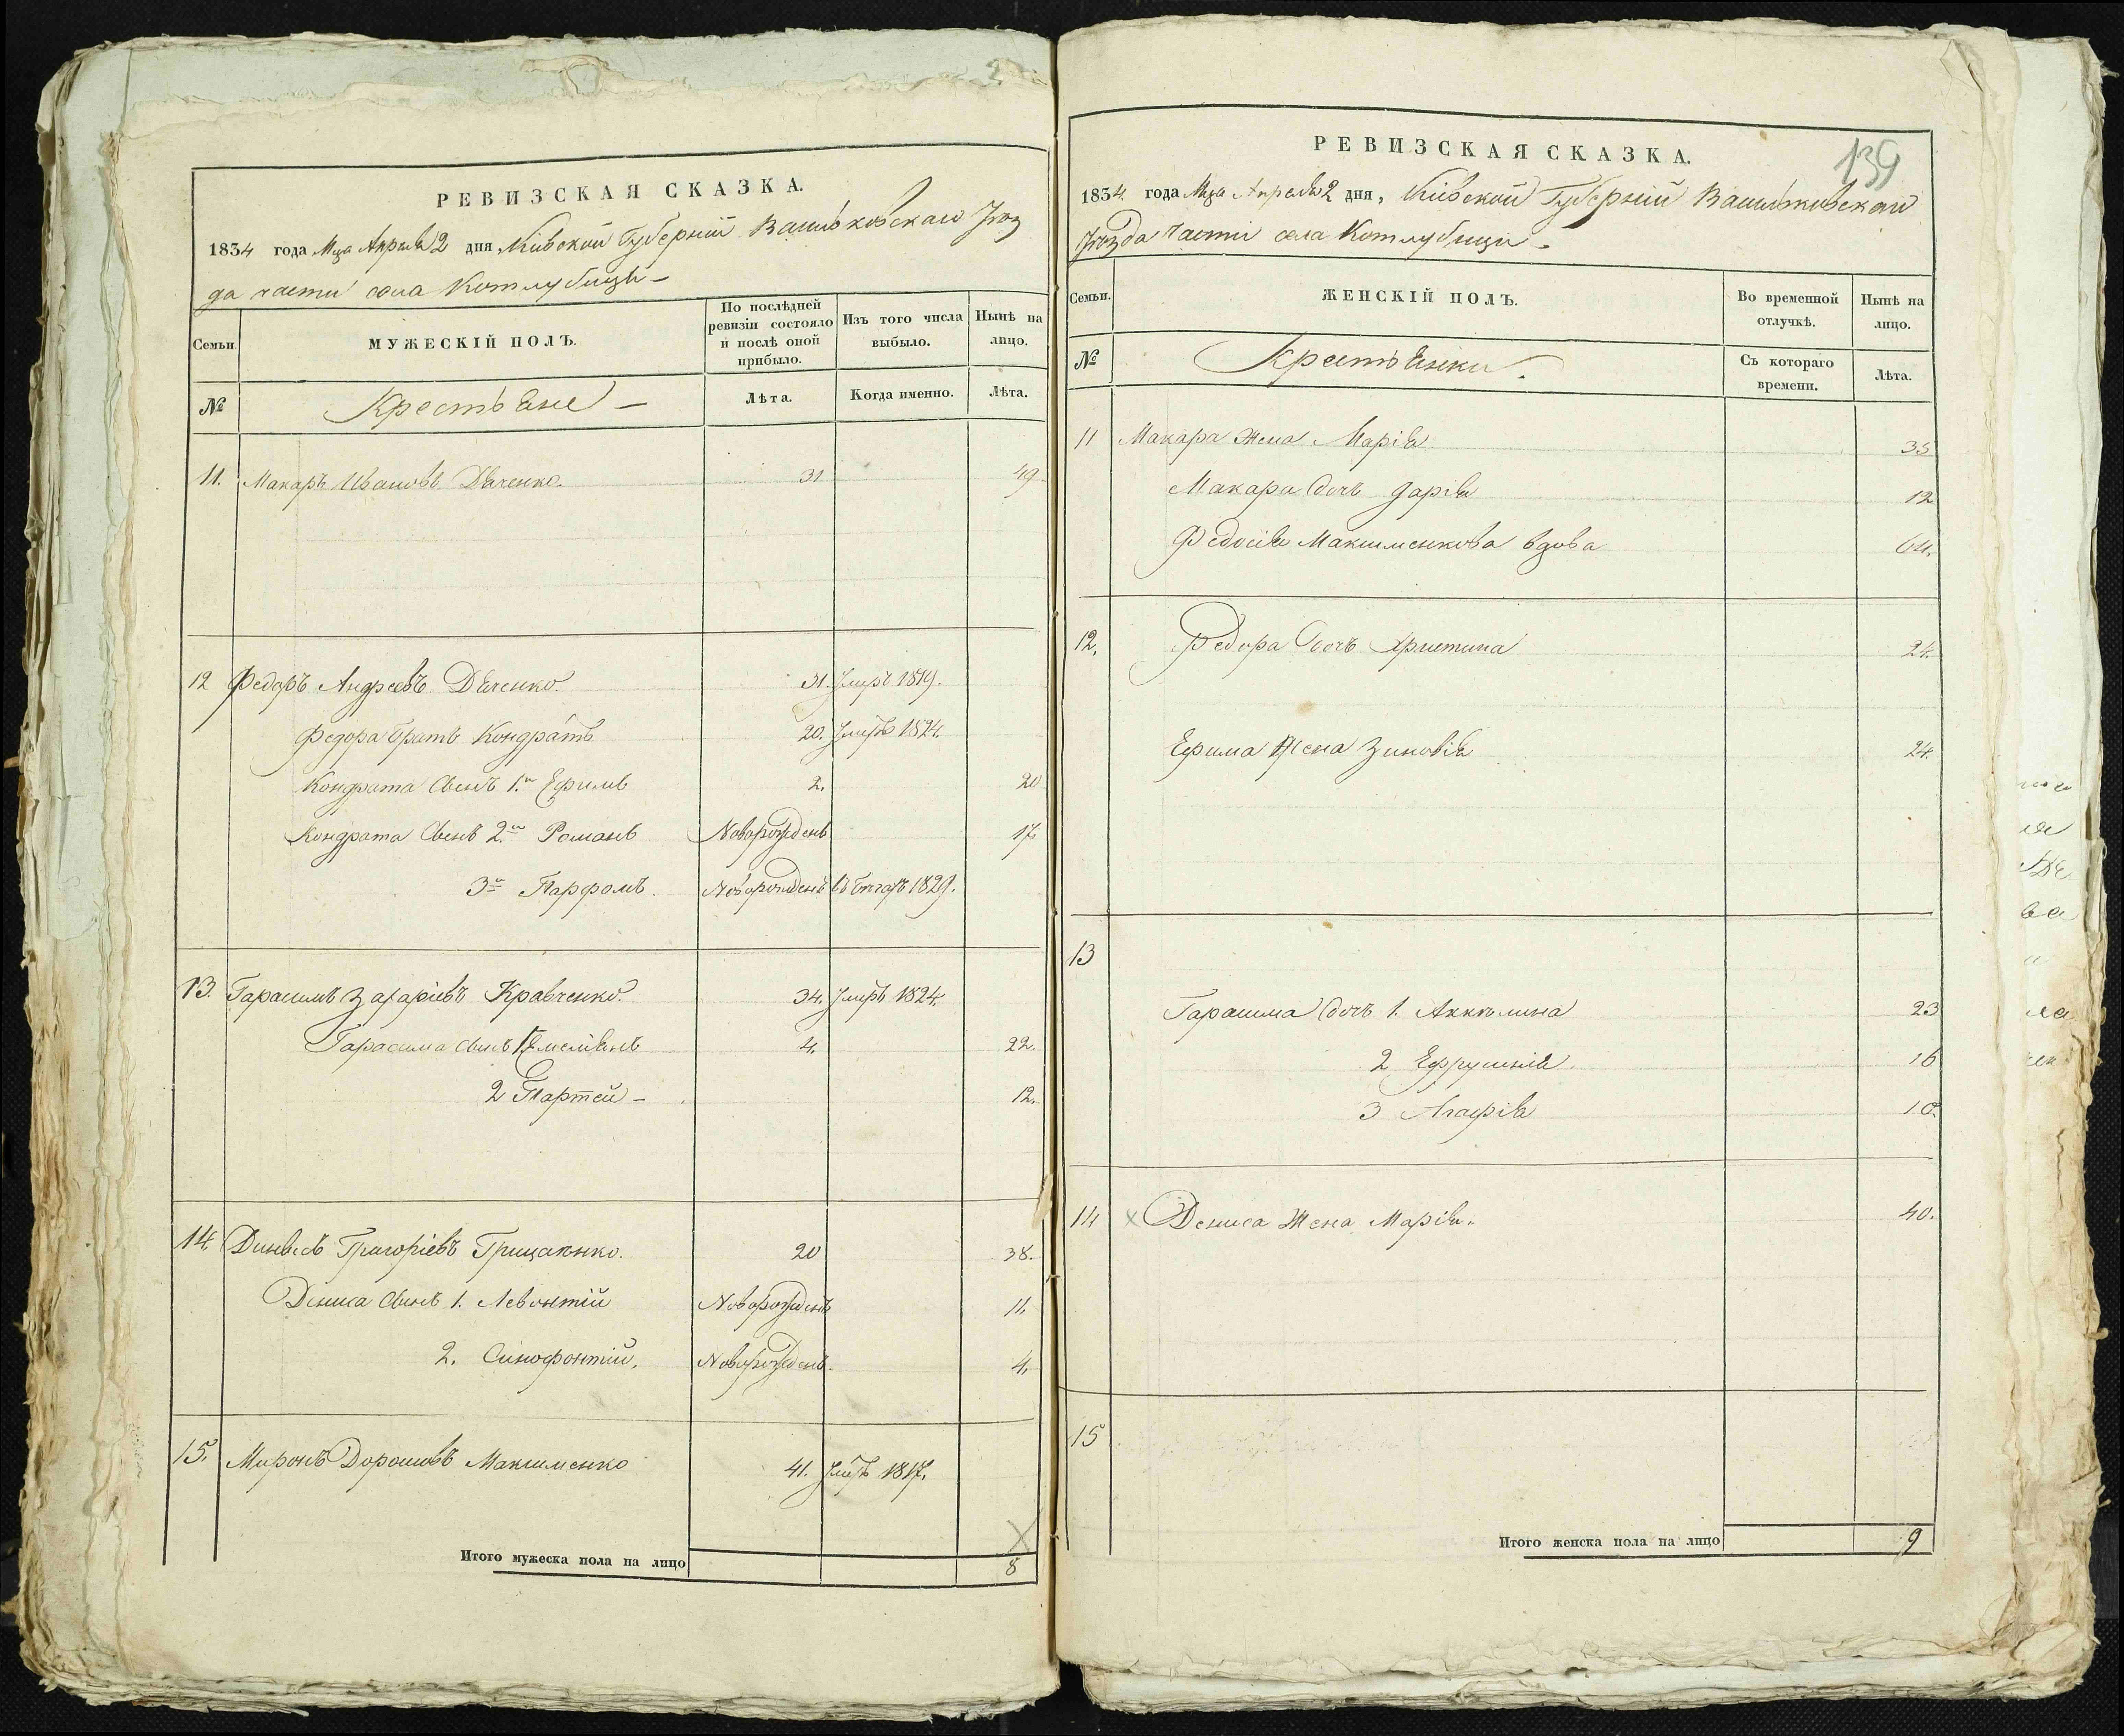 РЕВИЗСКАЯ СКАЗКА.
1834 года Мца Апрѣля 2 дня Кіевской Губерніи Васильковскаго Уѣз
да части села Котлубицы
Семьи.
МУЖЕСКІЙ ПОЛЪ.
По послѣдней ревизіи состояло и послѣ оной прибыло.
Изъ того числа выбыло.
Нынѣ на лицо.
№
Крестьяне
Лѣта.
Когда именно.
Лѣта.
11. Макаръ Ивановъ Дяченко. 31 49
12 Федоръ Андреевъ Дяченко. 31. Умеръ 1819.
Федора братъ Кондратъ 20. Умеръ 1824.
Кондрата Сынъ 1.й Ефимъ 2. 20
Кондрата Сынъ 2.й Романъ Новорожденъ 17
3й Парфомъ Новорожденъ въ бѣгахъ 1829.
13. Гарасимъ Захаріевъ Кравченко. 34. Умеръ 1824.
Гарасима Сынъ 1 Емеліянъ 4. 22.
2 Партей 12.
14. Динисъ Григоріевъ Грицаенко. 20 38.
Дениса Сынъ 1. Левонтій Новорожденъ 11.
2. Синофонтій. Новорожденъ. 4.
15. Миронъ Дорошовъ Максименко 41. Умеръ 1817.
Итого мужеска пола на лицо 8
139
РЕВИЗСКАЯ СКАЗКА.
1834. года Мца Апреля 2 дня, Кіевской Губерніи Васильковскаго
Уѣзда части села Котлубицы
Семьи.
ЖЕНСКІЙ ПОЛЪ.
Во временной отлучкѣ.
Нынѣ на лицо.
№
Крестьянки.
Съ котораго времени.
Лѣта.
11 Макара Жена Марія 35
Макара дочь Дарія 12
Федосія Максименкова вдова 64.
12. Федора дочь Христина 24.
Ефима Жена Зиновія 24.
13
Гарасима дочь 1. Аккилина 23
2 Ефрусинія. 16
3 Агафія 10.
14 х Дениса Жена Марія. 40.
15
Итого женска пола на лицо 9